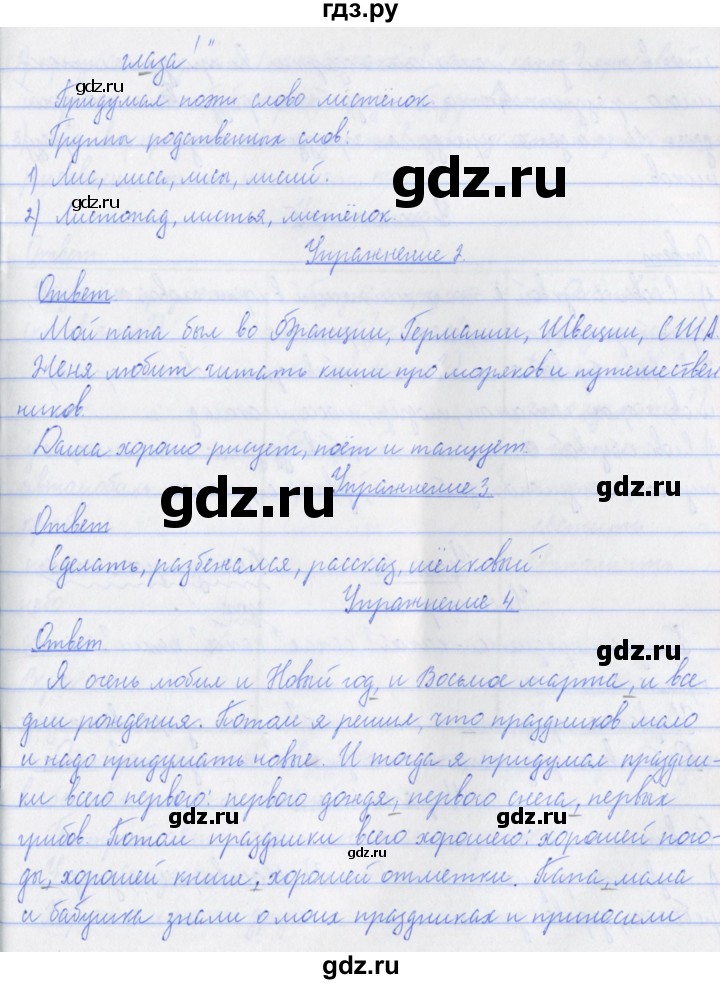 гдз.ру
глаза!"
Придумал поэт слово листёнок.
Группы родственных слов:
1) Лис, лиса, лисы, лисий.
2) Листопад, листья, листёнок.
Упражнение 2.
Ответ
Мой папа был во Франции, Германии, Швеции, США.
Женя любит читать книги про моряков и путешествен
ников.
Даша хорошо рисует, поёт и танцует.
Упражнение 3.
Ответ
Сделать, разбежался, рассказ, шёлковый
Упражнение 4.
Ответ
Я очень любил и Новый год, и Восьмое марта, и все
дни рождения. Потом я решил, что праздников мало
и надо придумать новые. И тогда я придумал праздни-
ки всего первого: первого дождя, первого снега, первых
грибов. Потом праздники всего хорошего: хорошей пого-
ды, хорошей книги, хорошей отметки. Папа, мама
и бабушка знали о моих праздниках и приносили
gdz.ru
gdz.ru
gdz.ru
gdz.ru
gdz.ru
gdz.ru
gdz.ru
gdz.ru
gdz.ru
gdz.ru
gdz.ru
gdz.ru
gdz.ru